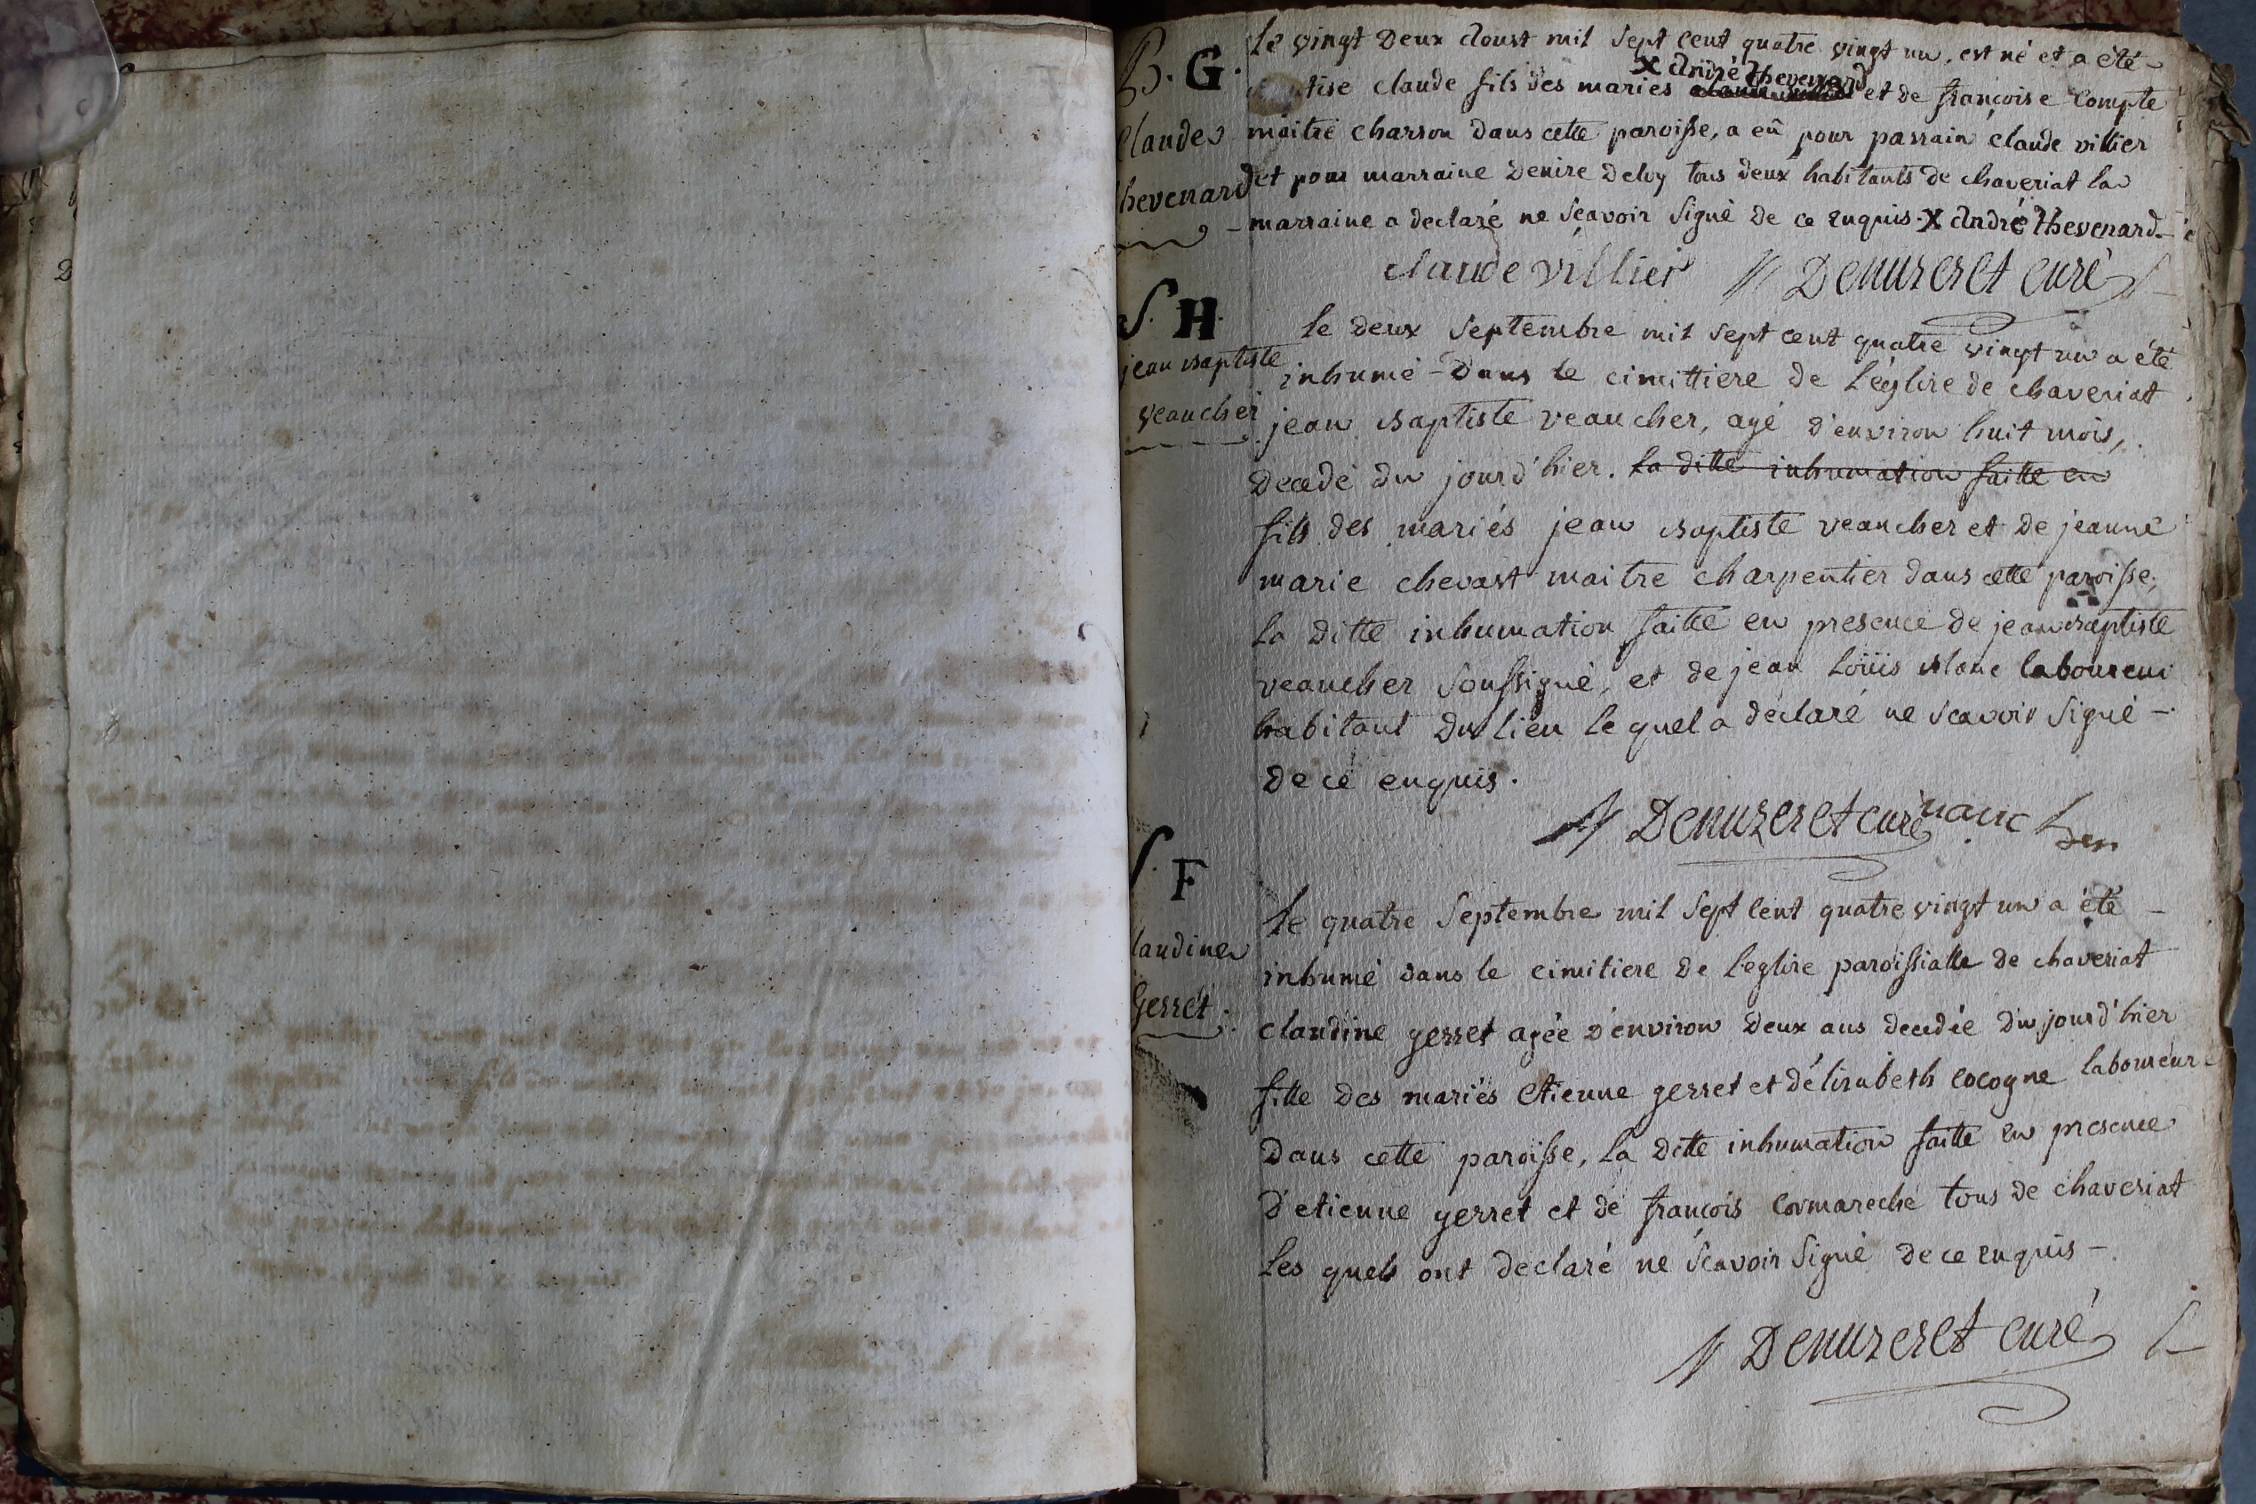 B. G.
Claude
thevenard
Le vingt Deux Aoust mil sept cent quatre vingt un, est né et a été
X André thevenard
tise claude fils des mariés et de françoise Compte
maitre charron dans cette paroisse, a eû pour parrain claude villier
et pour marraine Denise Deloy tous deux habitants de chaveriat la
marraine a declaré ne sçavoir signé de ce enquis. X André thevenard
claude villier Denuzeret curé
S. H.
jean Baptiste
veaucher
le deux septembre mil sept cent quatre vingt un a été
inhumé Dans le cimittiere de l'église de chaveriat
jean Baptiste veaucher, agé d'environ huit mois,
Decedé du jourd'hier. la ditte inhumation faitte en
fils des mariés jean Baptiste veaucher et de jeanne
marie chevast maitre charpentier dans cette paroisse,
la ditte inhumation faitte en presence de jean Baptiste
veaucher soussigné, et de jean Loüis Blanc laboureur
habitant du lieu le quel a déclaré ne sçavoir signé –
de ce enquis.
Denuzeret curé
S. F
laudine
Gerret
le quatre septembre mil sept cent quatre vingt un a été
inhumé dans le cimitiere de l'eglise paroissialle de chaveriat
claudine gerret agée d'environ Deux ans decedée du jourd'hier
fille des mariés etienne gerret et d'élisabeth cocogne laboureur
Dans cette paroisse, la ditte inhumation faitte en presence
D'etienne gerret et de françois Cormareche tous de chaveriat
les quels ont declaré ne sçavoir signé de ce enquis –
Denuzeret curé